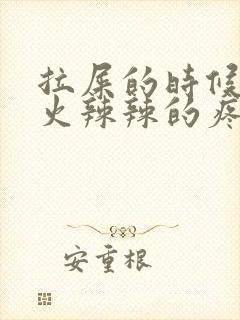 拉屎的时候
火辣辣的疼
安重根